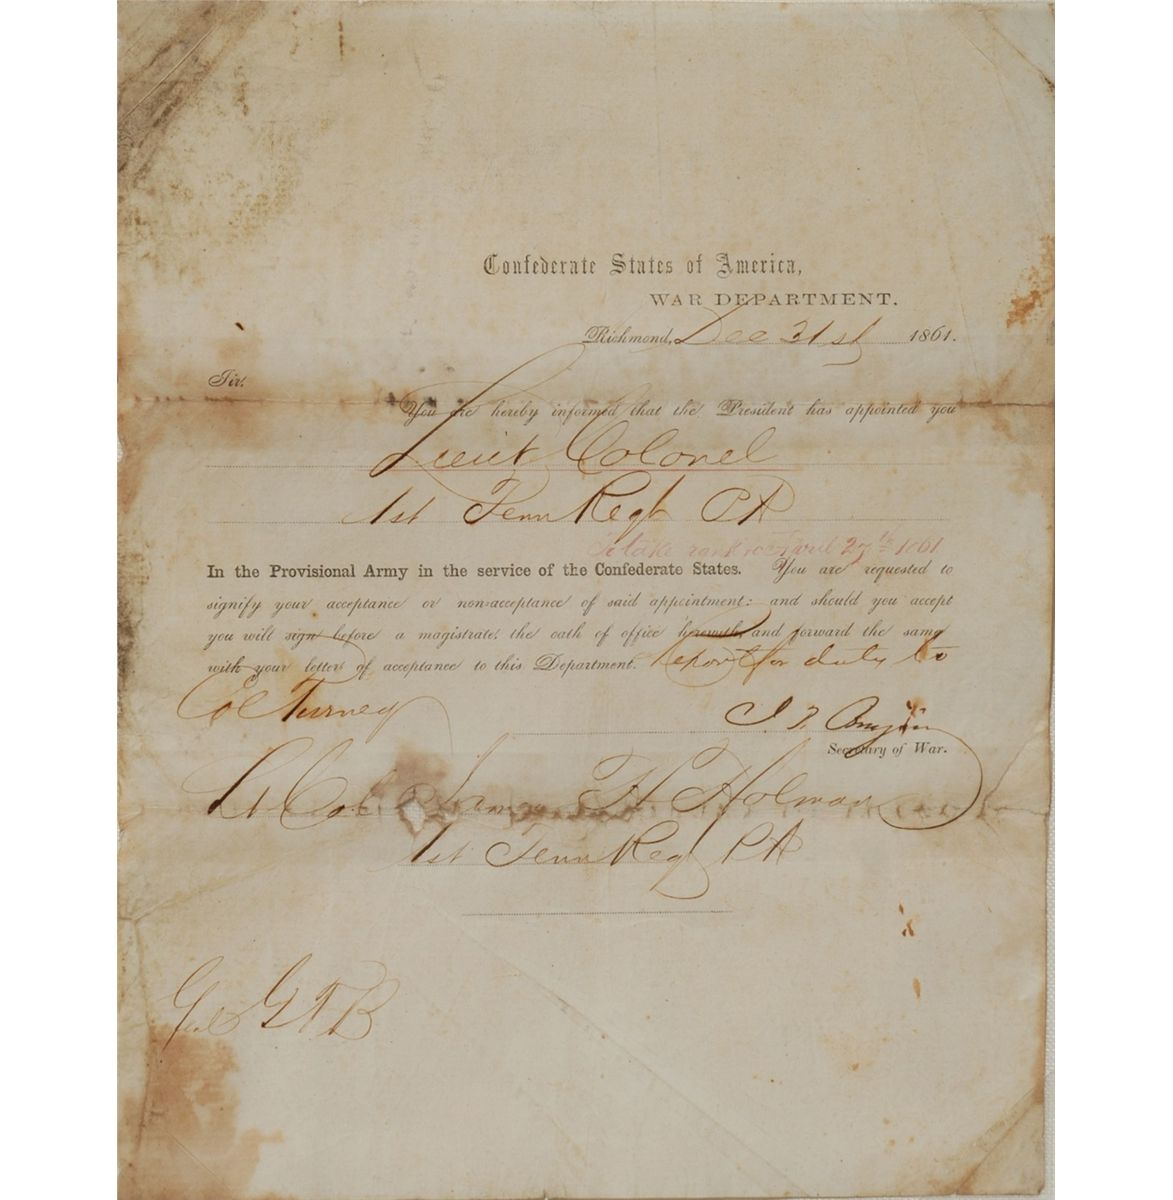 Confederate States of America,
WAR DEPARTMENT.
Richmond, Dec 31st 1861.
Sir:
You are hereby informed that the President has appointed you
Lieut Colonel
1st Tenn Regt PA
To take rank from April 27th 1861
In the Provisional Army in the service of the Confederate States. You are requested to
signify your acceptance or non-acceptance of said appointment: and should you accept
you will sign before a magistrate, the oath of office herewith, and forward the same
with your letter of acceptance to this Department. Report for duty to
Col Turney
J. P. Benjamin
Secretary of War.
Lt Col James H Holman
1st Tenn Regt PA
G T B